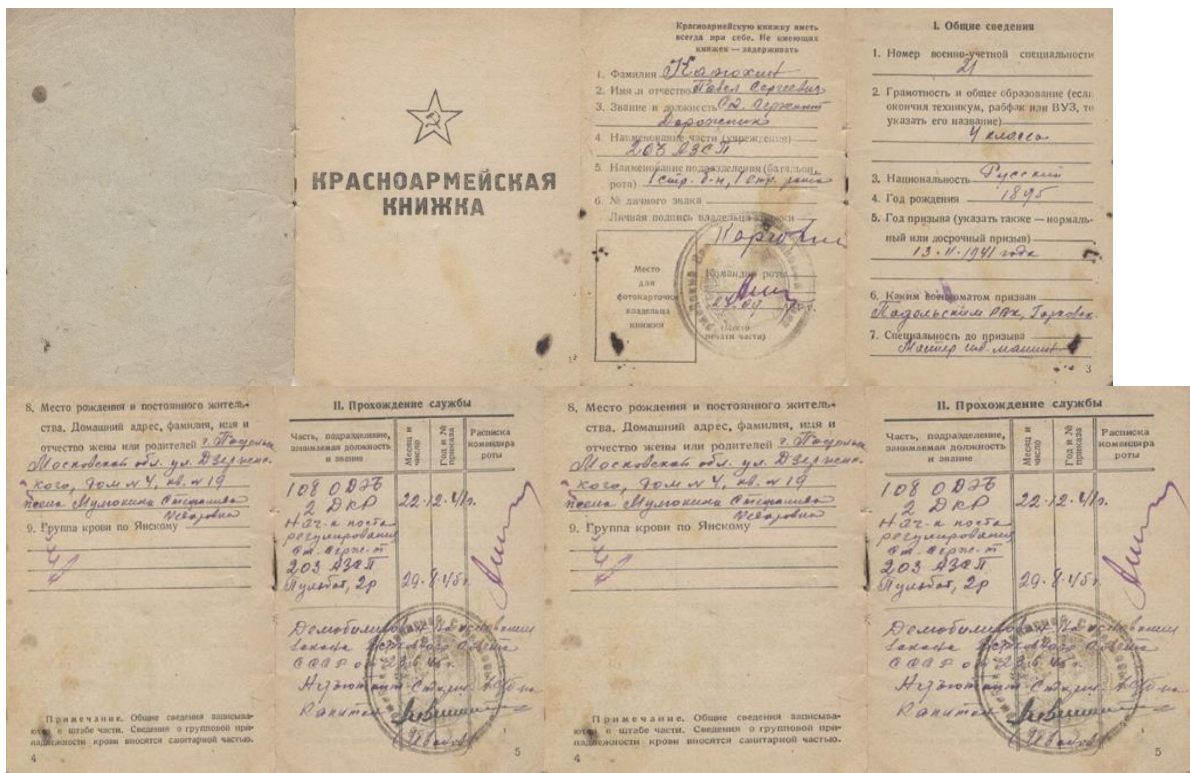 КРАСНОАРМЕЙСКАЯ
КНИЖКА
1
Красноармейскую книжку иметь
всегда при себе. Не имеющих
книжек — задерживать
1. Фамилия
2. Имя и отчество Павел Сергеевич
3. Звание и должность Ст. Сержант
Дорожник
4. Наименование части (учреждения)
203 АЗСП
5. Наименование подразделения (батальон,
рота) 1 стр. б-н, 1 стр. рота
6. № личного знака
Личная подпись владельца книжки
Место
для
фотокарточки
владельца
книжки
Командир роты
(Место
печати части)
I. Общие сведения
1. Номер военно-учетной специальности
21
2. Грамотность и общее образование (если
окончил техникум, рабфак или ВУЗ, то
указать его название)
4 класса
3. Национальность Русский
4. Год рождения 1895
5. Год призыва (указать также — нормаль-
ный или досрочный призыв)
13.11.1941 года
6. Каким военкоматом призван
Подольским РВК,
7. Специальность до призыва
Мастер шв. машин
3
8. Место рождения и постоянного житель-
ства. Домашний адрес, фамилия, имя и
отчество жены или родителей г. Подольск
Московской обл. ул. Дзержинс
кого, дом № 4, кв. № 19
9. Группа крови по Янскому
Примечание. Общие сведения записыва-
ются в штабе части. Сведения о групповой при-
надлежности крови вносятся санитарной частью.
4
II. Прохождение службы
Часть, подразделение,
занимаемая должность
и звание
Месяц и
число
Год и №
приказа
Расписка
командира
роты
108 ОДЭБ
2 ДКР 22.12.41г.
Нач-к поста
регулирования
ст. серж-т
203 АЗСП
Пульбат, 2р 29.8.45г.
Демобилизован на основании
закона Верховного Совета
СССР от 23.6.45г.
Капитан
5
8. Место рождения и постоянного житель-
ства. Домашний адрес, фамилия, имя и
отчество жены или родителей г. Подольск
Московской обл. ул. Дзержинс
кого, дом № 4, кв. № 19
9. Группа крови по Янскому
Примечание. Общие сведения записыва-
ются в штабе части. Сведения о групповой при-
надлежности крови вносятся санитарной частью.
4
II. Прохождение службы
Часть, подразделение,
занимаемая должность
и звание
Месяц и
число
Год и №
приказа
Расписка
командира
роты
108 ОДЭБ
2 ДКР 22.12.41г.
Нач-к поста
регулирования
ст. серж-т
203 АЗСП
Пульбат, 2р 29.8.45г.
Демобилизован на основании
закона Верховного Совета
СССР от 23.6.45г.
Капитан
5